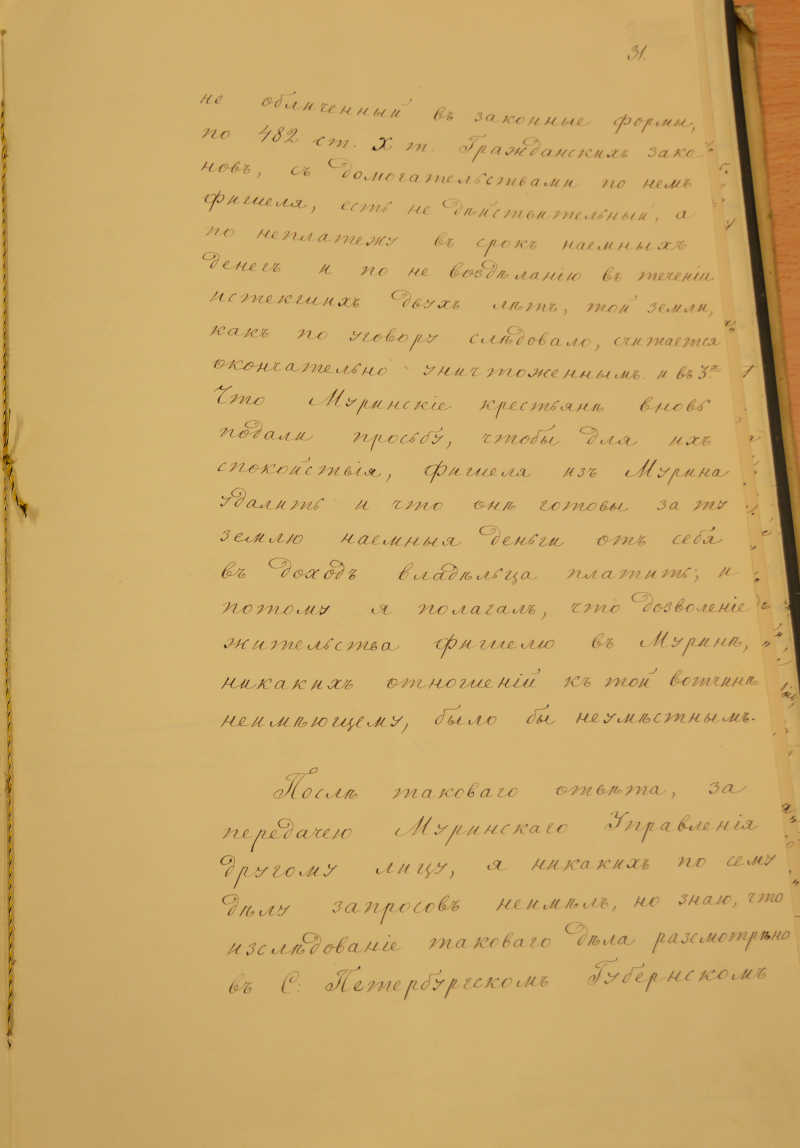 31.
не обличенный въ законные формы,
по 482 ст. X т. Гражданскихъ зако-
новъ, съ домогательствами по немъ
фишеля, есть не дѣйствительный, а
по неплатежу въ срокъ наемныхъ
денегъ и по не воздѣланію въ теченіи
истекшихъ двухъ лѣтъ, той земли,
какъ по уговору слѣдовало, считается
окончательно уничтоженнымъ и въ 3.хъ
Что Муринскіе крестьяне вновь
подали просьбу, чтобы для ихъ
спокойствія, фишеля изъ Мурина
удалить и что онѣ готовы за ту
землю наемныя деньги отъ себя
въ доходъ владѣльца платить; и
потому я полагалъ, что дозволеніе
жительства фишелю въ Муринѣ,
никакихъ отношеній къ той вотчинѣ
неимѣющему, было бы неумѣстнымъ.
Послѣ таковаго отвѣта, за
передачею Муринскаго Управленія
другому лицу, я никакихъ по сему
дѣлу запросовъ неимѣлъ, но знаю, что
изслѣдованіе таковаго дѣла разсмотрѣно
въ С. Петербургскомъ Губернскомъ